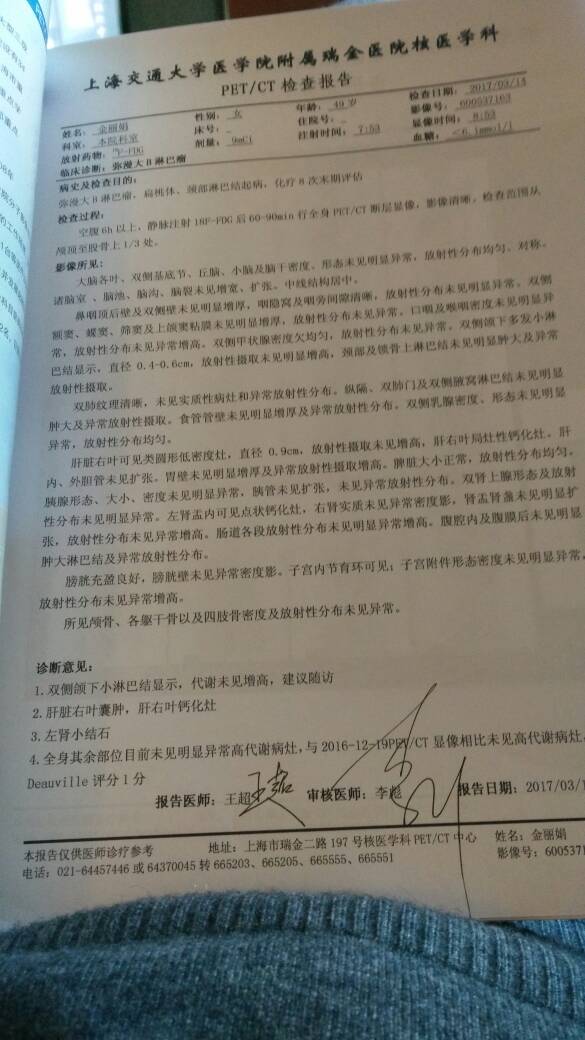 上海交通大学医学院附属瑞金医院核医学科
PET/CT 检查报告
姓名：金丽娟 性别：女 年龄：49岁 检查日期：2017/03/14
科室：本院科室 床号：- 住院号：- 影像号：600537163
放射药物：18F-FDG 剂量：9mCi 注射时间：7:53 显像时间：8:53
临床诊断：弥漫大B淋巴瘤 血糖：<6.1mmol/l
病史及检查目的：
弥漫大B淋巴瘤，扁桃体、颈部淋巴结起病，化疗8次末期评估
检查过程：
空腹6h以上，静脉注射18F-FDG后60-90min行全身PET/CT断层显像，影像清晰。检查范围从
颅顶至股骨上1/3处。
影像所见：
大脑各叶、双侧基底节、丘脑、小脑及脑干密度、形态未见明显异常，放射性分布均匀、对称。
诸脑室、脑池、脑沟、脑裂未见增宽、扩张。中线结构居中。
鼻咽顶后壁及双侧壁未见明显增厚，咽隐窝及咽旁间隙清晰，放射性分布未见明显异常。双侧
额窦、蝶窦、筛窦及上颌窦粘膜未见明显增厚，放射性分布未见异常。口咽及喉咽密度未见明显异
常，放射性分布未见异常增高。双侧甲状腺密度欠均匀，放射性分布未见异常。双侧颌下多发小淋
巴结显示，直径0.4-0.6cm，放射性摄取未见明显增高，颈部及锁骨上淋巴结未见明显肿大及异常
放射性摄取。
双肺纹理清晰，未见实质性病灶和异常放射性分布。纵隔、双肺门及双侧腋窝淋巴结未见明显
肿大及异常放射性摄取。食管管壁未见明显增厚及异常放射性分布。双侧乳腺密度、形态未见明显
异常，放射性分布均匀。
肝脏右叶可见类圆形低密度灶，直径0.9cm，放射性摄取未见增高，肝右叶局灶性钙化灶。肝
内、外胆管未见扩张。胃壁未见明显增厚及异常放射性摄取增高。脾脏大小正常，放射性分布均匀。
胰腺形态、大小、密度未见明显异常，胰管未见扩张，未见异常放射性分布。双肾上腺形态及放射
性分布未见明显异常。左肾盂内可见点状钙化灶，右肾实质未见异常密度影，肾盂肾盏未见明显扩
张，放射性分布未见异常增高。肠道各段放射性分布未见明显异常增高。腹腔内及腹膜后未见明显
肿大淋巴结及异常放射性分布。
膀胱充盈良好，膀胱壁未见异常密度影。子宫内节育环可见；子宫附件形态密度未见明显异常，
放射性分布未见异常增高。
所见颅骨、各躯干骨以及四肢骨密度及放射性分布未见异常。
诊断意见：
1.双侧颌下小淋巴结显示，代谢未见增高，建议随访
2.肝脏右叶囊肿，肝右叶钙化灶
3.左肾小结石
4.全身其余部位目前未见明显异常高代谢病灶，与2016-12-19PET/CT显像相比未见高代谢病灶，
Deauville评分1分
报告医师：王超 审核医师：李彪 报告日期：2017/03/1
本报告仅供医师诊疗参考 地址：上海市瑞金二路197号核医学科PET/CT中心 姓名：金丽娟
电话：021-64457446或64370045转665203、665205、665555、665551 影像号：6005371